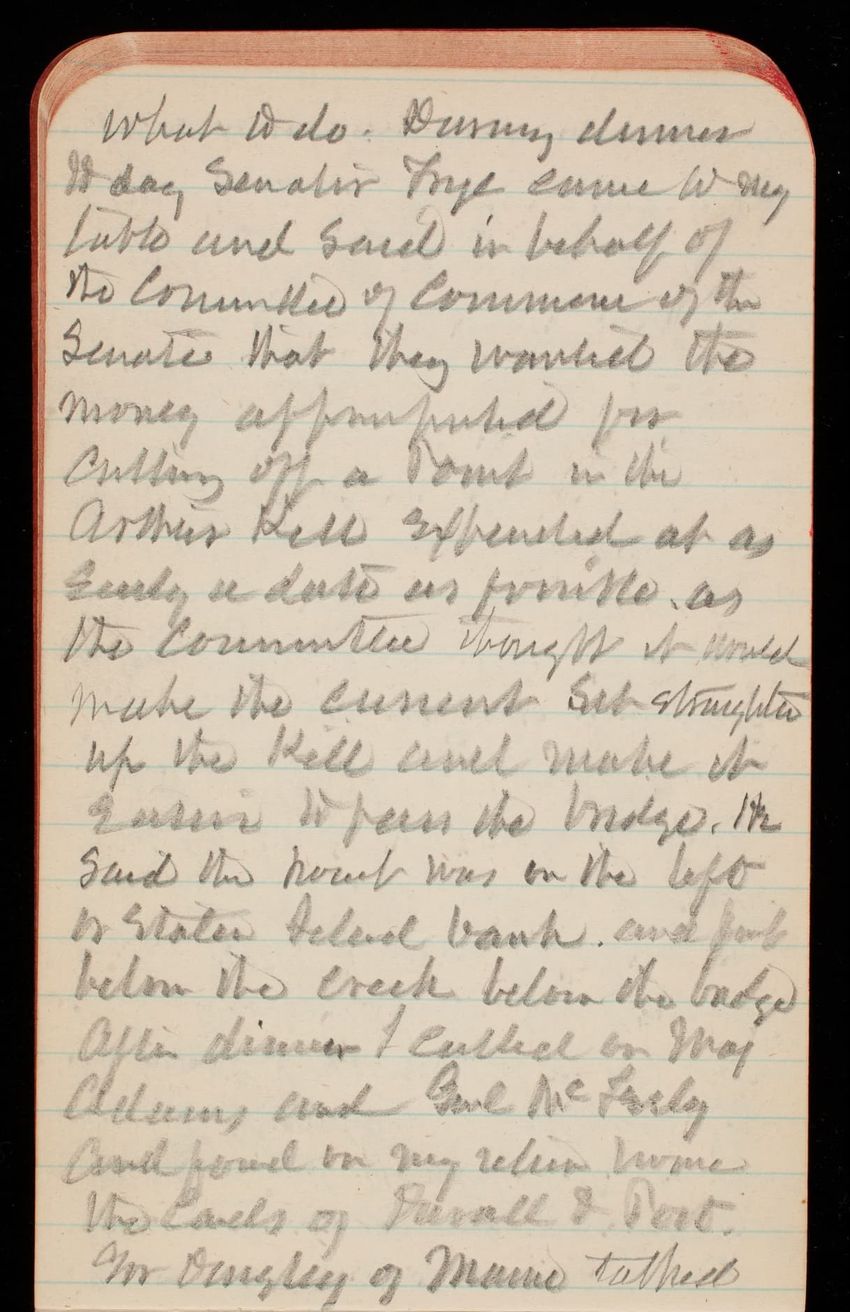 What to do. During dinner
to day Senator Frye came to my
table and said in behalf of
the Committee of Commerce of the
Senate that they wanted the
money appropriated for
Cutting off a Point in the
Arthur Kill Expended at as
Early a date as possible. as
the Committee thought it would
make the current Set straighter
up the Kill and make it
Easier to pass the bridge. He
Said the point was on the left
or Staten Island bank. and just
below the creek below the bridge
After dinner I called on Maj
Adams and Genl McFeely
and found on my return home
the Cards of & Post.
Gov Dingley of Maine talked